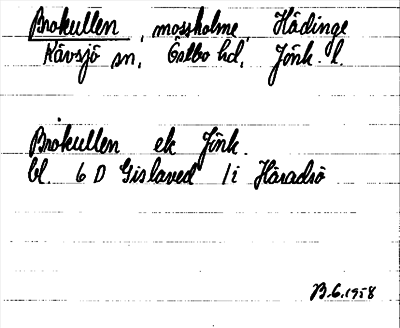 Brokullen, mossholme, Hådinge
Kävsjö sn, Östbo hd, Jönk. l.
Brokullen ek Jönk.
bl. 6 D Gislaved 1 i Häradsö
B.G. 1958